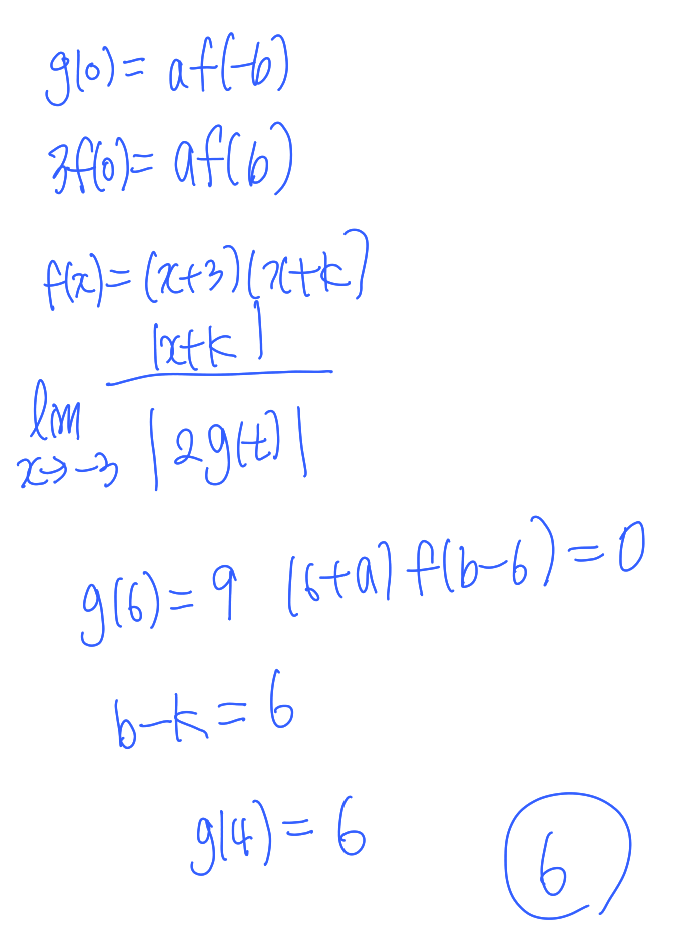 g(0) = af(-6)
3f(0) = af(6)
f(x) = (x+3)(x+k)
|x+k|
lim x→-3 |2g(t)|
g(6) = 9 (6+a) f(b-6) = 0
b-k = 6
g(4) = 6
6